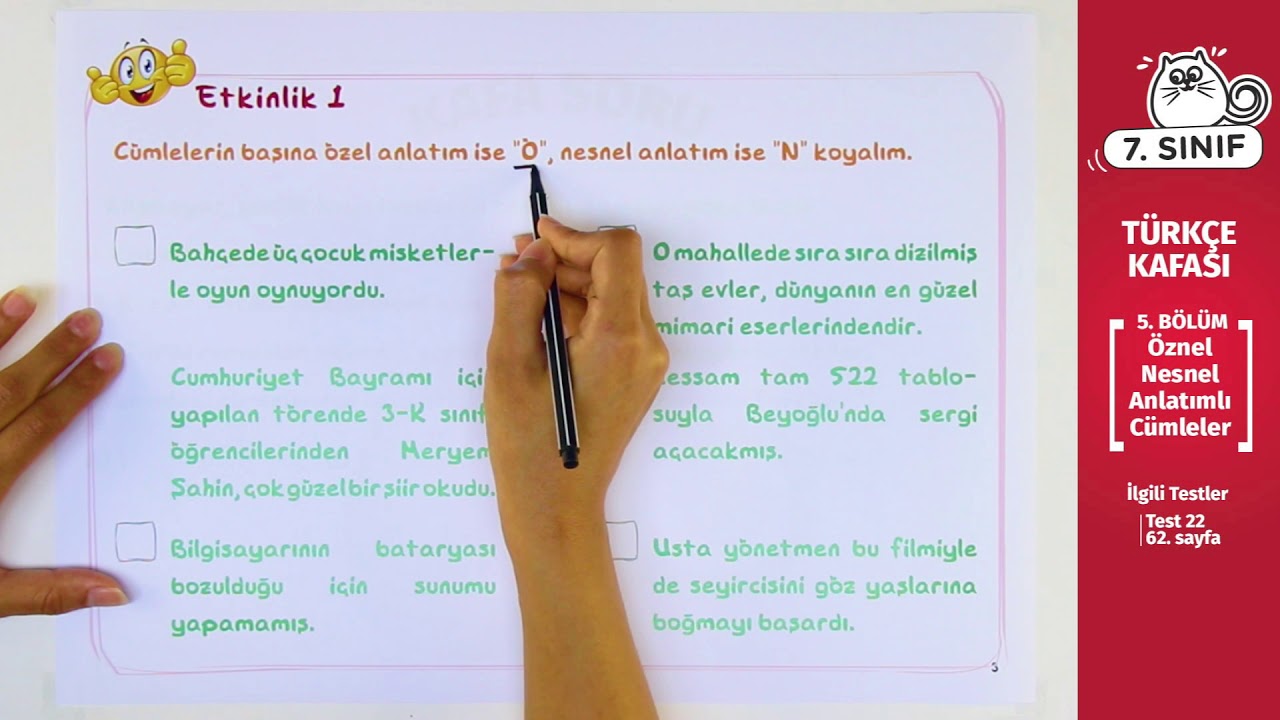 Etkinlik 1
Cümlelerin başına özel anlatım ise "Ö", nesnel anlatım ise "N" koyalım.
Bahçede üç çocuk misketler-
le oyun oynuyordu.
Cumhuriyet Bayramı için
yapılan törende 3-K sınıf
öğrencilerinden Meryem
Şahin, çok güzel bir şiir okudu.
Bilgisayarının bataryası
bozulduğu için sunumu
yapamamış.
O mahallede sıra sıra dizilmiş
taş evler, dünyanın en güzel
mimari eserlerindendir.
Ressam tam 522 tablo-
suyla Beyoğlu'nda sergi
açacakmış.
Usta yönetmen bu filmiyle
de seyircisini göz yaşlarına
boğmayı başardı.
3
7. SINIF
TÜRKÇE
KAFASI
5. BÖLÜM
Öznel
Nesnel
Anlatımlı
Cümleler
İlgili Testler
Test 22
62. sayfa